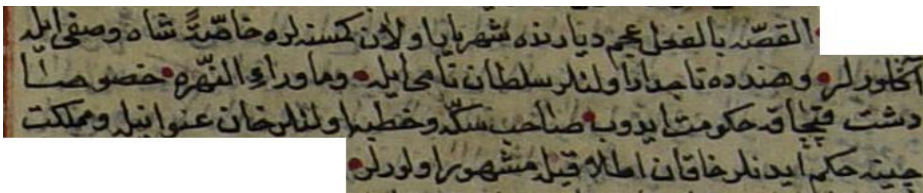 القصّه بالفعل عجم دیارنده شهریار اولان کمسنه‌لره خاصّةً شاه وصفی ایله
آکلورلر • و هندده تاجدار اولنلر سلطان نامی ایله • و ماوراء النهره خصوصا
دشت قپچاقه حکومت ایدوب • صاحب سکّه و خطبه اولنلر خان عنوانیله و مملکت
چینه حکم ایدنلر خاقان اطلاقیله مشهور اولورلر •